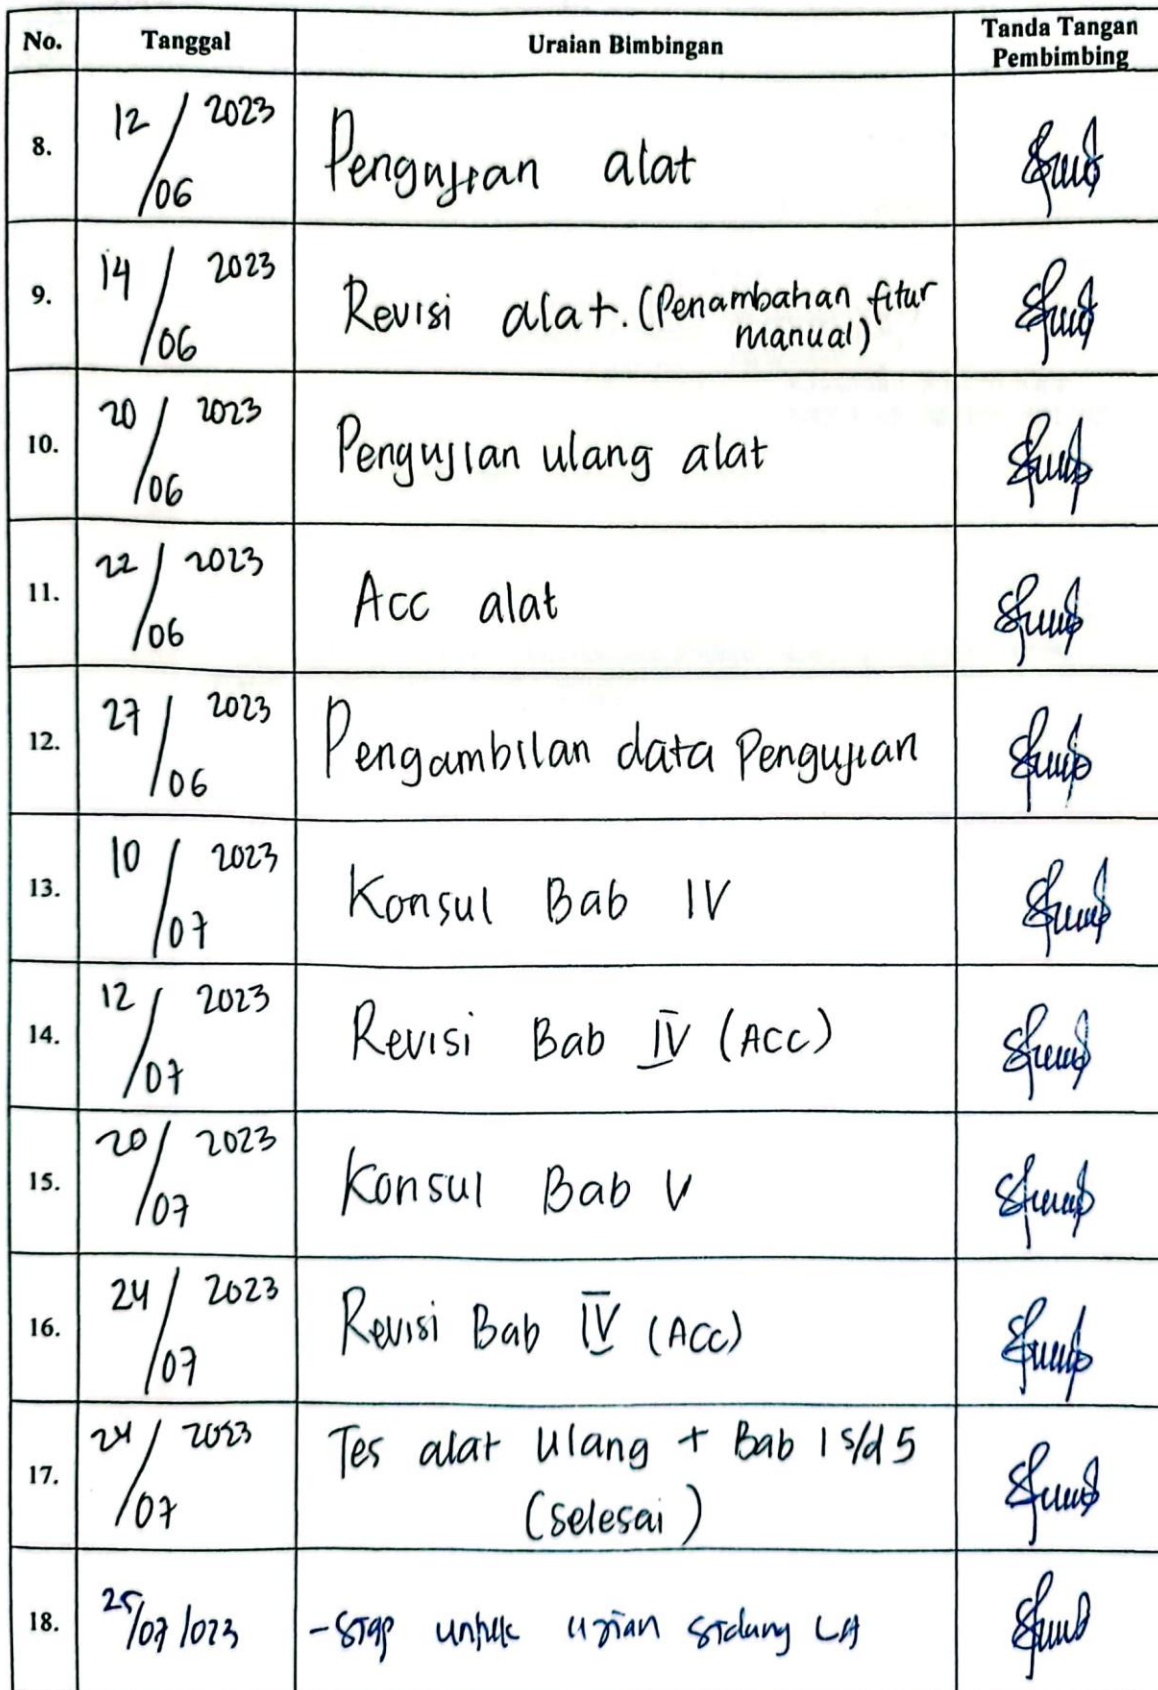 No. Tanggal Uraian Bimbingan Tanda Tangan
Pembimbing
8. 12/06 2023 Pengujian alat
9. 14/06 2023 Revisi alat. (Penambahan fitur
manual)
10. 20/06 2023 Pengujian ulang alat
11. 22/06 2023 Acc alat
12. 27/06 2023 Pengambilan data Pengujian
13. 10/07 2023 Konsul Bab IV
14. 12/07 2023 Revisi Bab IV (ACC)
15. 20/07 2023 Konsul Bab V
16. 24/07 2023 Revisi Bab IV (ACC)
17. 24/07 2023 Tes alat Ulang + Bab 1 s/d 5
(Selesai)
18. 25/07/023 - Siap untuk ujian sidang LA